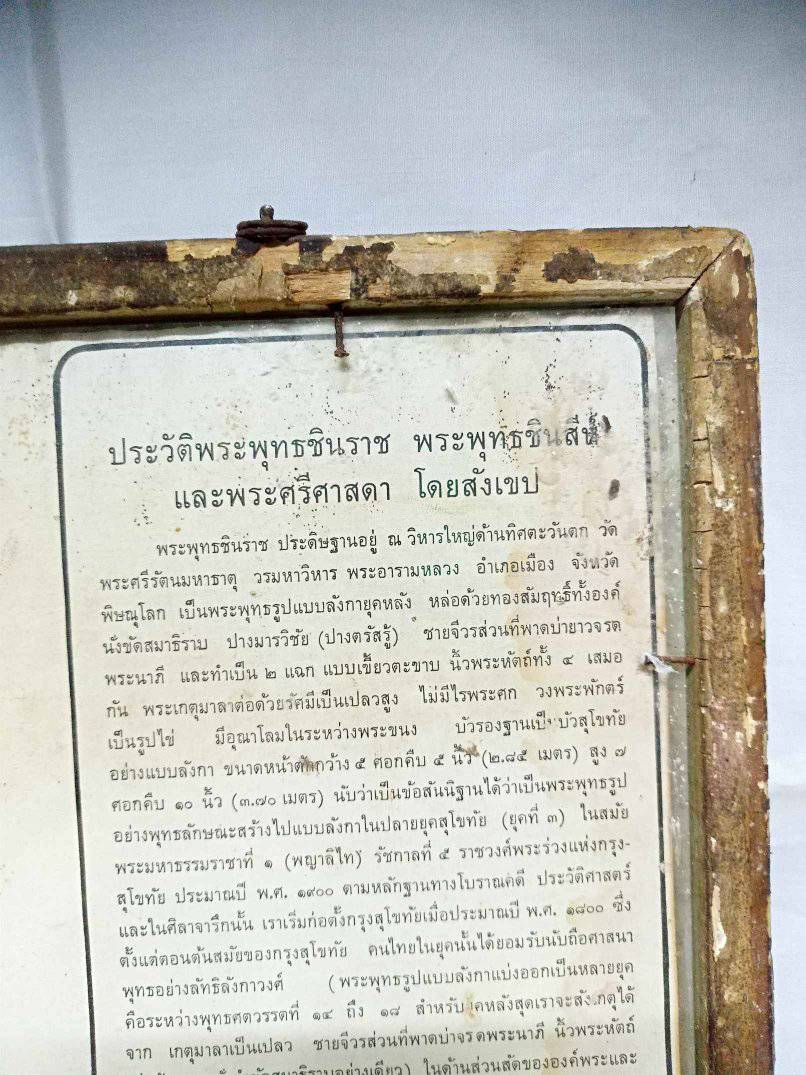 ประวัติพระพุทธชินราช พระพุทธชินสีห์
และพระศรีศาสดา โดยสังเขป
พระพุทธชินราช ประดิษฐานอยู่ ณ วิหารใหญ่ด้านทิศตะวันตก วัด
พระศรีรัตนมหาธาตุ วรมหาวิหาร พระอารามหลวง อำเภอเมือง จังหวัด
พิษณุโลก เป็นพระพุทธรูปแบบลังกายุคหลัง หล่อด้วยทองสัมฤทธิ์ทั้งองค์
นั่งขัดสมาธิราบ ปางมารวิชัย (ปางตรัสรู้) ชายจีวรส่วนที่พาดบ่ายาวจรด
พระนาภี และทำเป็น ๒ แฉก แบบเขี้ยวตะขาบ นิ้วพระหัตถ์ทั้ง ๔ เสมอ
กัน พระเกตุมาลาต่อด้วยรัศมีเป็นเปลวสูง ไม่มีไรพระศก วงพระพักตร์
เป็นรูปไข่ มีอุณาโลมในระหว่างพระขนง บัวรองฐานเป็นบัวสุโขทัย
อย่างแบบลังกา ขนาดหน้าตักกว้าง ๕ ศอกคืบ ๕ นิ้ว (๒.๘๕ เมตร) สูง ๗
ศอกคืบ ๑๐ นิ้ว (๓.๗๐ เมตร) นับว่าเป็นข้อสันนิฐานได้ว่าเป็นพระพุทธรูป
อย่างพุทธลักษณะสร้างไปแบบลังกาในปลายยุคสุโขทัย (ยุคที่ ๓) ในสมัย
พระมหาธรรมราชาที่ ๑ (พญาลิไท) รัชกาลที่ ๕ ราชวงศ์พระร่วงแห่งกรุง-
สุโขทัย ประมาณปี พ.ศ. ๑๙๐๐ ตามหลักฐานทางโบราณคดี ประวัติศาสตร์
และในศิลาจารึกนั้น เราเริ่มก่อตั้งกรุงสุโขทัยเมื่อประมาณปี พ.ศ. ๑๘๐๐ ซึ่ง
ตั้งแต่ตอนต้นสมัยของกรุงสุโขทัย คนไทยในยุคนั้นได้ยอมรับนับถือศาสนา
พุทธอย่างลัทธิลังกาวงศ์ (พระพุทธรูปแบบลังกาแบ่งออกเป็นหลายยุค
คือระหว่างพุทธศตวรรตที่ ๑๔ ถึง ๑๘ สำหรับยุคหลังสุดเราจะสังเกตุได้
จาก เกตุมาลาเป็นเปลว ชายจีวรส่วนที่พาดบ่าจรดพระนาภี นิ้วพระหัตถ์
ขัดสมาธิราบอย่างเดียว) ในด้านส่วนสัดขององค์พระและ